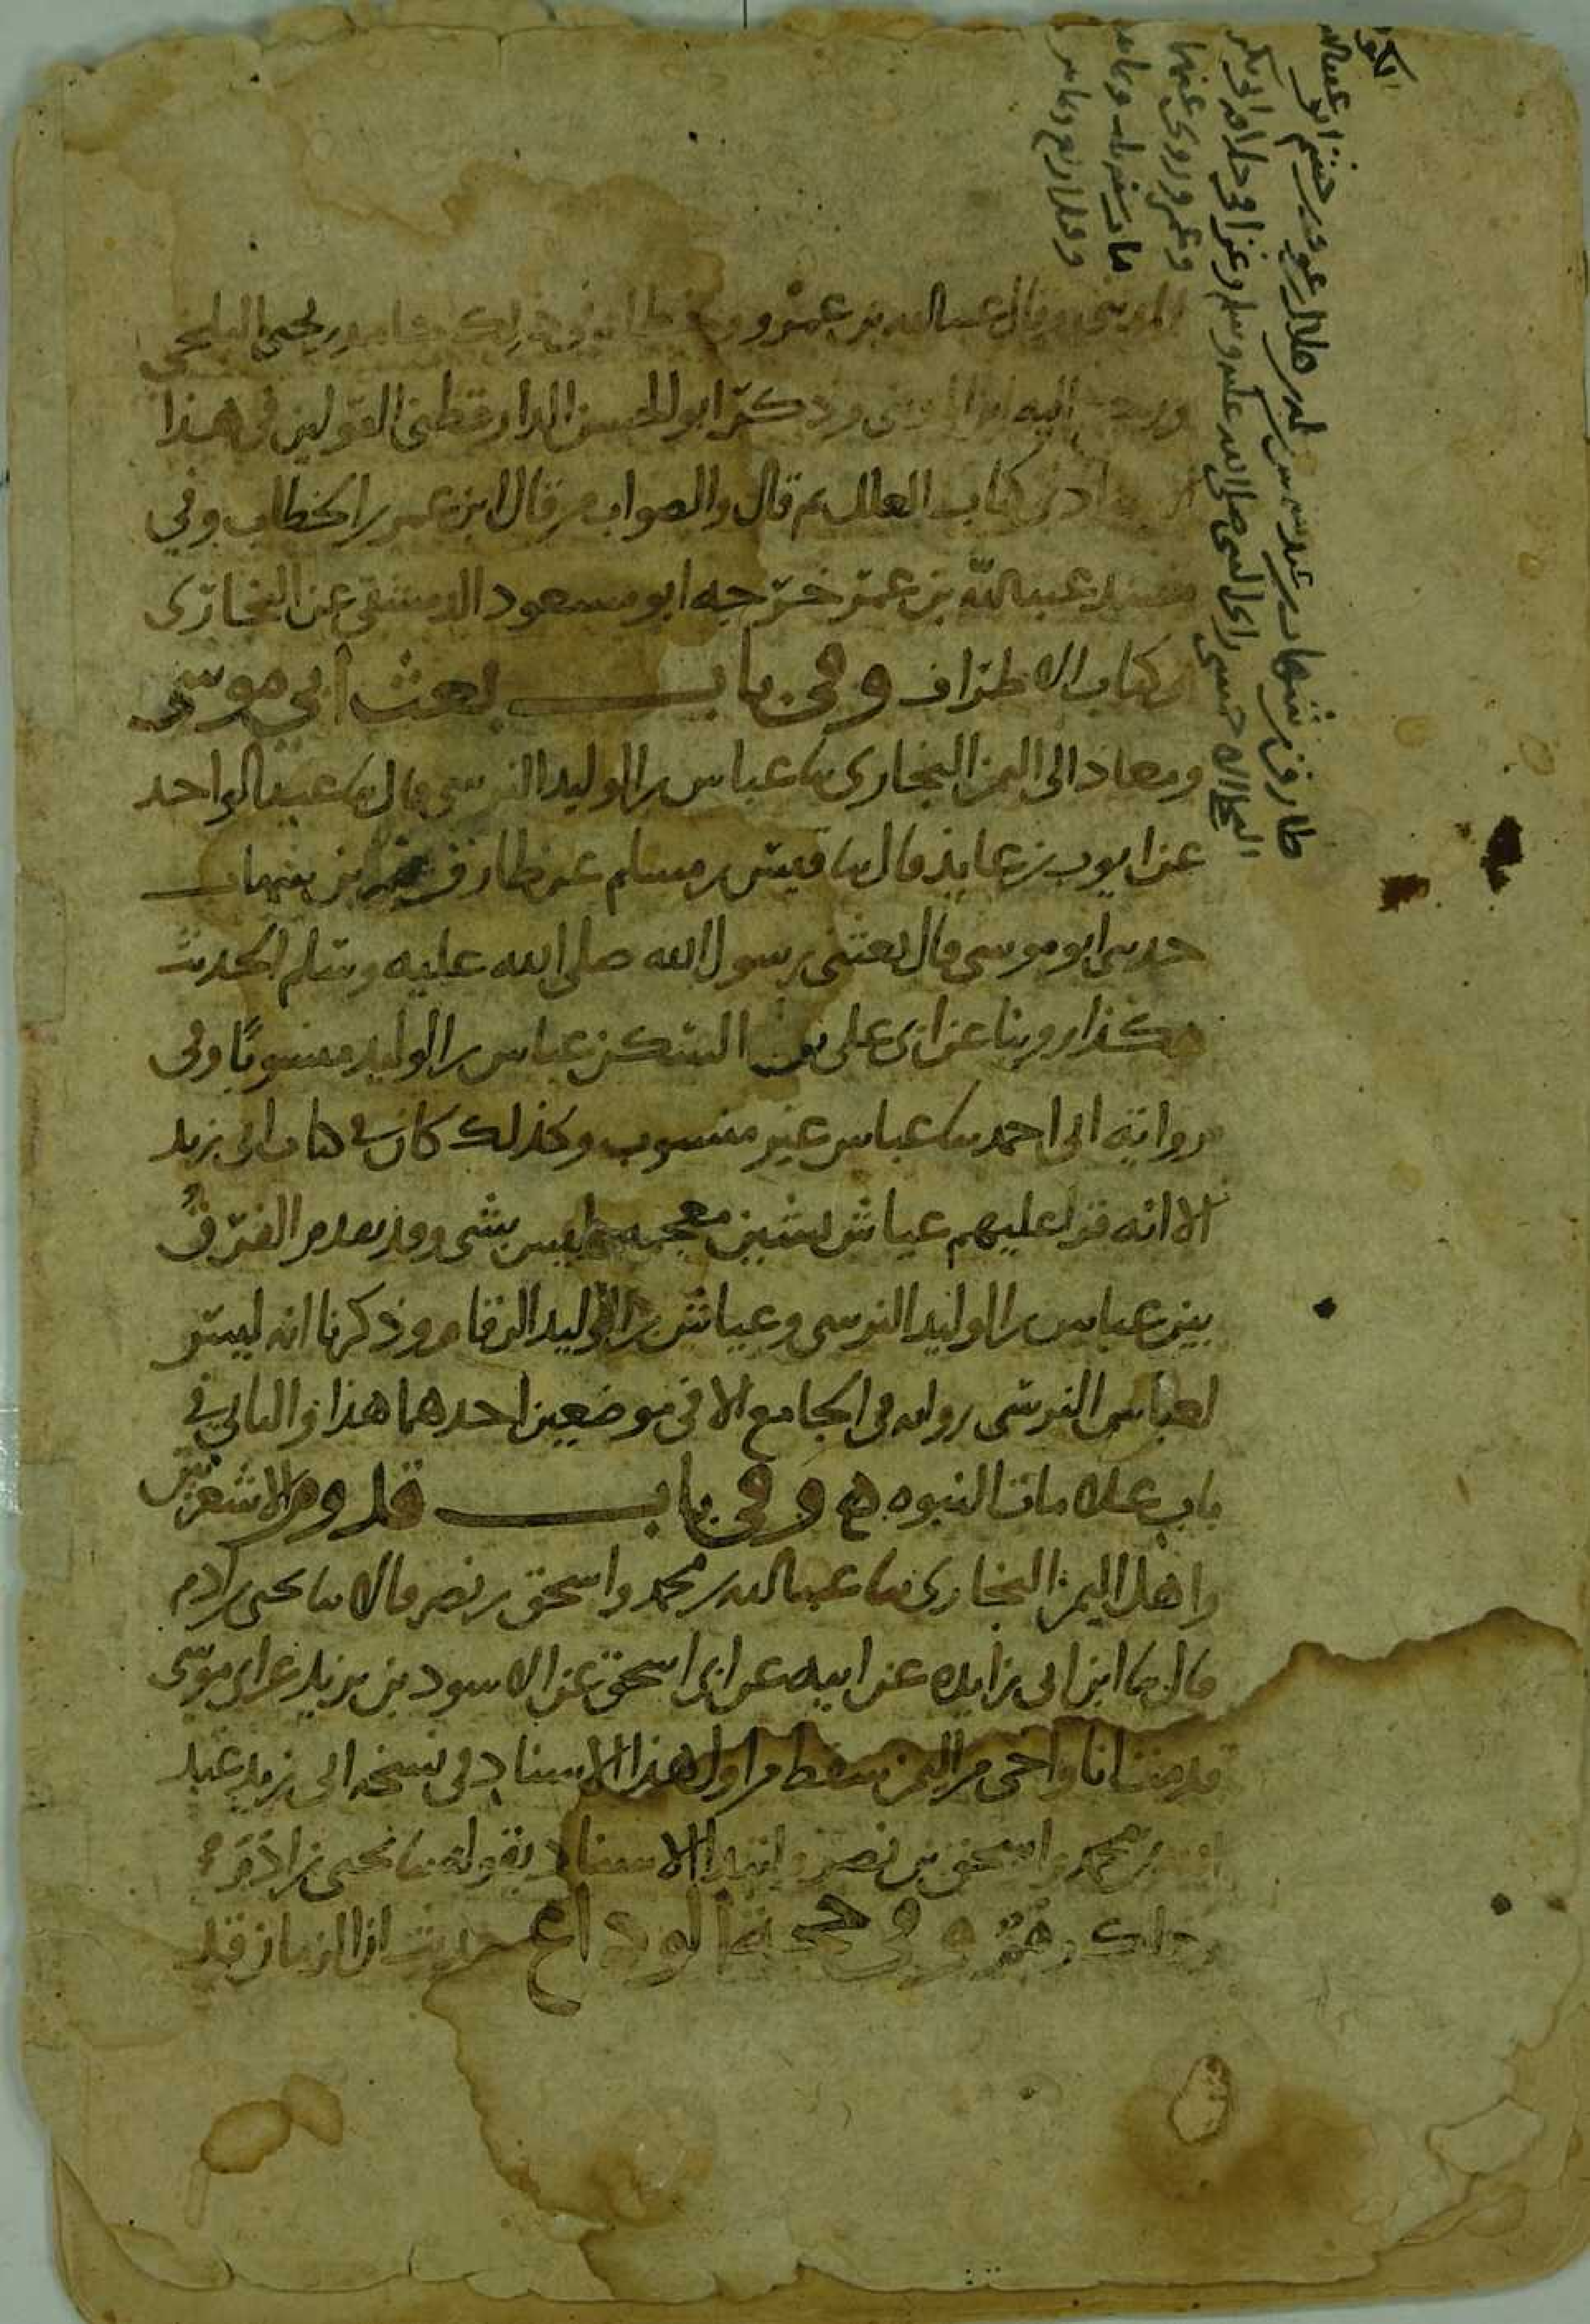 المديني وقال عبد الله بن عمرو في ذلك حامد بن يحيى البلخي
اليه ابن المديني وذكر ابو الحسن الدارقطني القولين في هذا
في كتاب العلل ثم قال والصواب من قال ابن عمر بن الخطاب وفي
مسند عبد الله بن عمر خرجه ابو مسعود الدمشقي عن البخاري
في كتاب الاطراف وفي باب بعث ابي موسى
ومعاذ الى اليمن البخاري نا عباس بن الوليد النرسي قال نا عبد الواحد
عن ايوب بن عايذ قال نا قيس بن مسلم عن طارق بن شهاب
حدثني ابو موسى قال بعثني رسول الله صلى الله عليه وسلم الحديث
هكذا روينا عن ابي علي بن السكن عباس بن الوليد منسوبا وفي
رواية ابي احمد نا عباس غير منسوب وكذلك كان في كتاب ابي زيد
الا انه قرا عليهم عياش بشين معجمة وليس بشي وقد تقدم الفرق
بين عباس بن الوليد النرسي وعياش بن الوليد الرقام وذكرنا انه ليس
لعباس النرسي رواية في الجامع الا في موضعين احدهما هذا والثاني في
باب علامات النبوه وفي باب قدوم الاشعريين
واهل اليمن البخاري نا عبد الله بن محمد واسحق بن نصر قالا نا يحيى بن ادم
قال نا ابن ابي زايده عن ابيه عن ابي اسحق عن الاسود بن يزيد عن ابي موسى
قدمت انا واخي من اليمن سقط من اول هذا الاسناد في نسخه ابي زيد عبد
الله بن محمد واسحق بن نصر وابتدا الاسناد بقوله نا يحيى بن ادم
وذلك وهم وفي حجة الوداع حديث ان الزمان قد
طارق بن شهاب بن عبد شمس بن سلمه بن هلال بن عوف بن جشم
البجلي الاحمسي راى النبي صلى الله عليه وسلم وغزا في خلافه ابي بكر
وعمر وروى عنهما